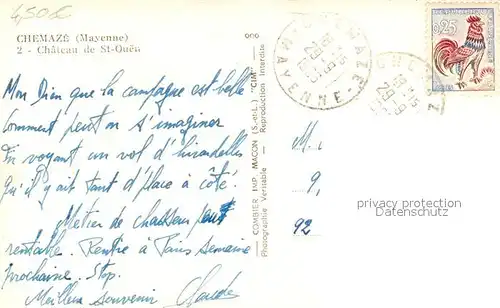 4,50€
CHEMAZÉ (Mayenne)
2 - Château de St-Ouën
Mon Dieu que la campagne est belle
Comment peut on s'imaginer
En voyant un vol d'hirondelles
Qu'il y ait tant d'place à côté.
Métier de chasseur peut
rentable. Rentre à Paris semaine
prochaine. Stop.
Meilleur souvenir
Claude
COMBIER IMP. MACON (S.-et-L.) "CIM"
Photographie Véritable - Reproduction Interdite
CHEMAZÉ
MAYENNE
CHEMAZE
0,25
M.
9,
92
privacy protection
Datenschutz